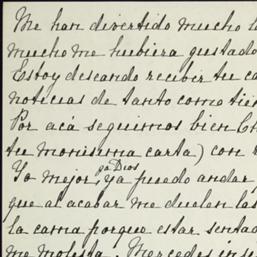 Me han divertido mucho l
mucho me hubiera gustado
Estoy deseando recibir tu ca
noticias de tanto como tien
Por acá seguimos bien
tu monísima carta) con
Yo mejor, ya puedo andar,
ga Dios
que al acabar me duelen las
la cama porque estar senta
me molesta. Mercedes